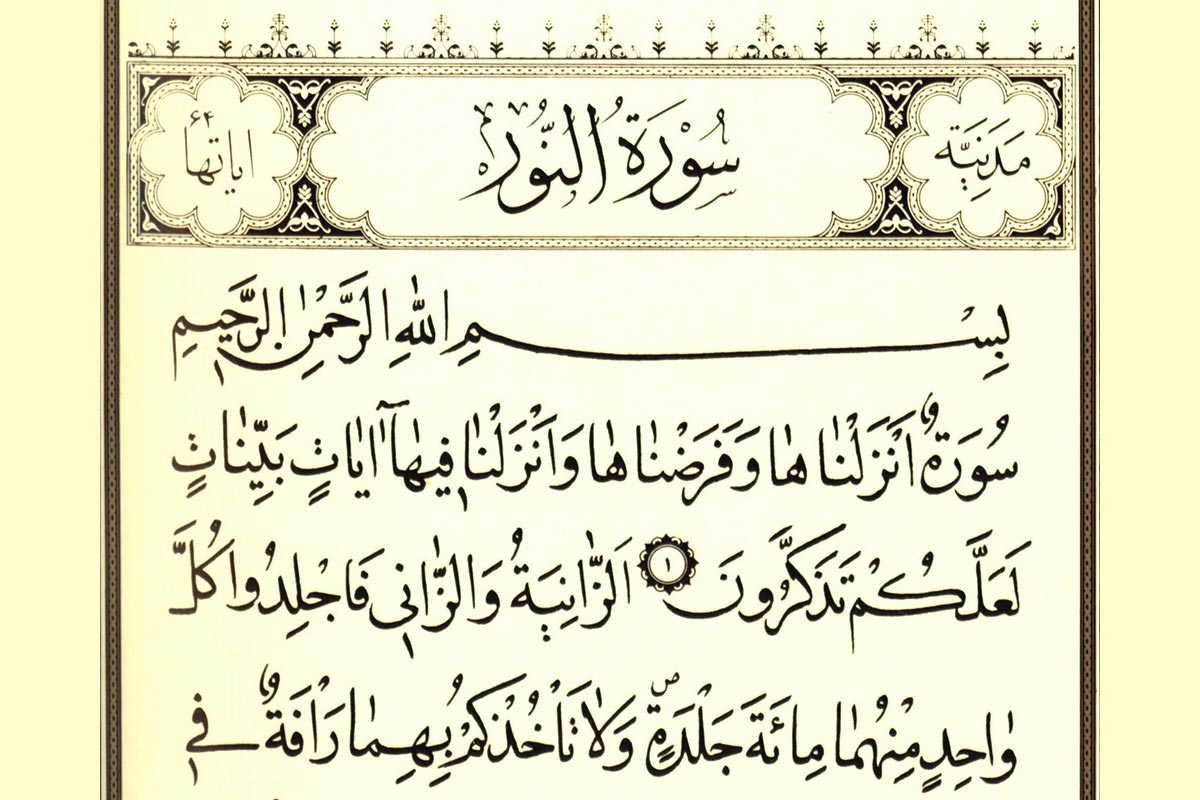 مَدَنِيَّة سُورَةُ النُّور اياتها ۶۴
بِسْمِ اللّٰهِ الرَّحْمٰنِ الرَّحِيمِ
سُورَةٌ اَنْزَلْنٰاهٰا وَفَرَضْنٰاهٰا وَاَنْزَلْنٰا فِيهٰآ اٰيٰاتٍ بَيِّنٰاتٍ
لَعَلَّكُمْ تَذَكَّرُونَ ١ اَلزّٰانِيَةُ وَالزّٰانِى فَاجْلِدُوا كُلَّ
وٰاحِدٍ مِنْهُمٰا مِائَةَ جَلْدَةٍ ۖ وَلٰا تَاْخُذْكُمْ بِهِمٰا رَاْفَةٌ فِى